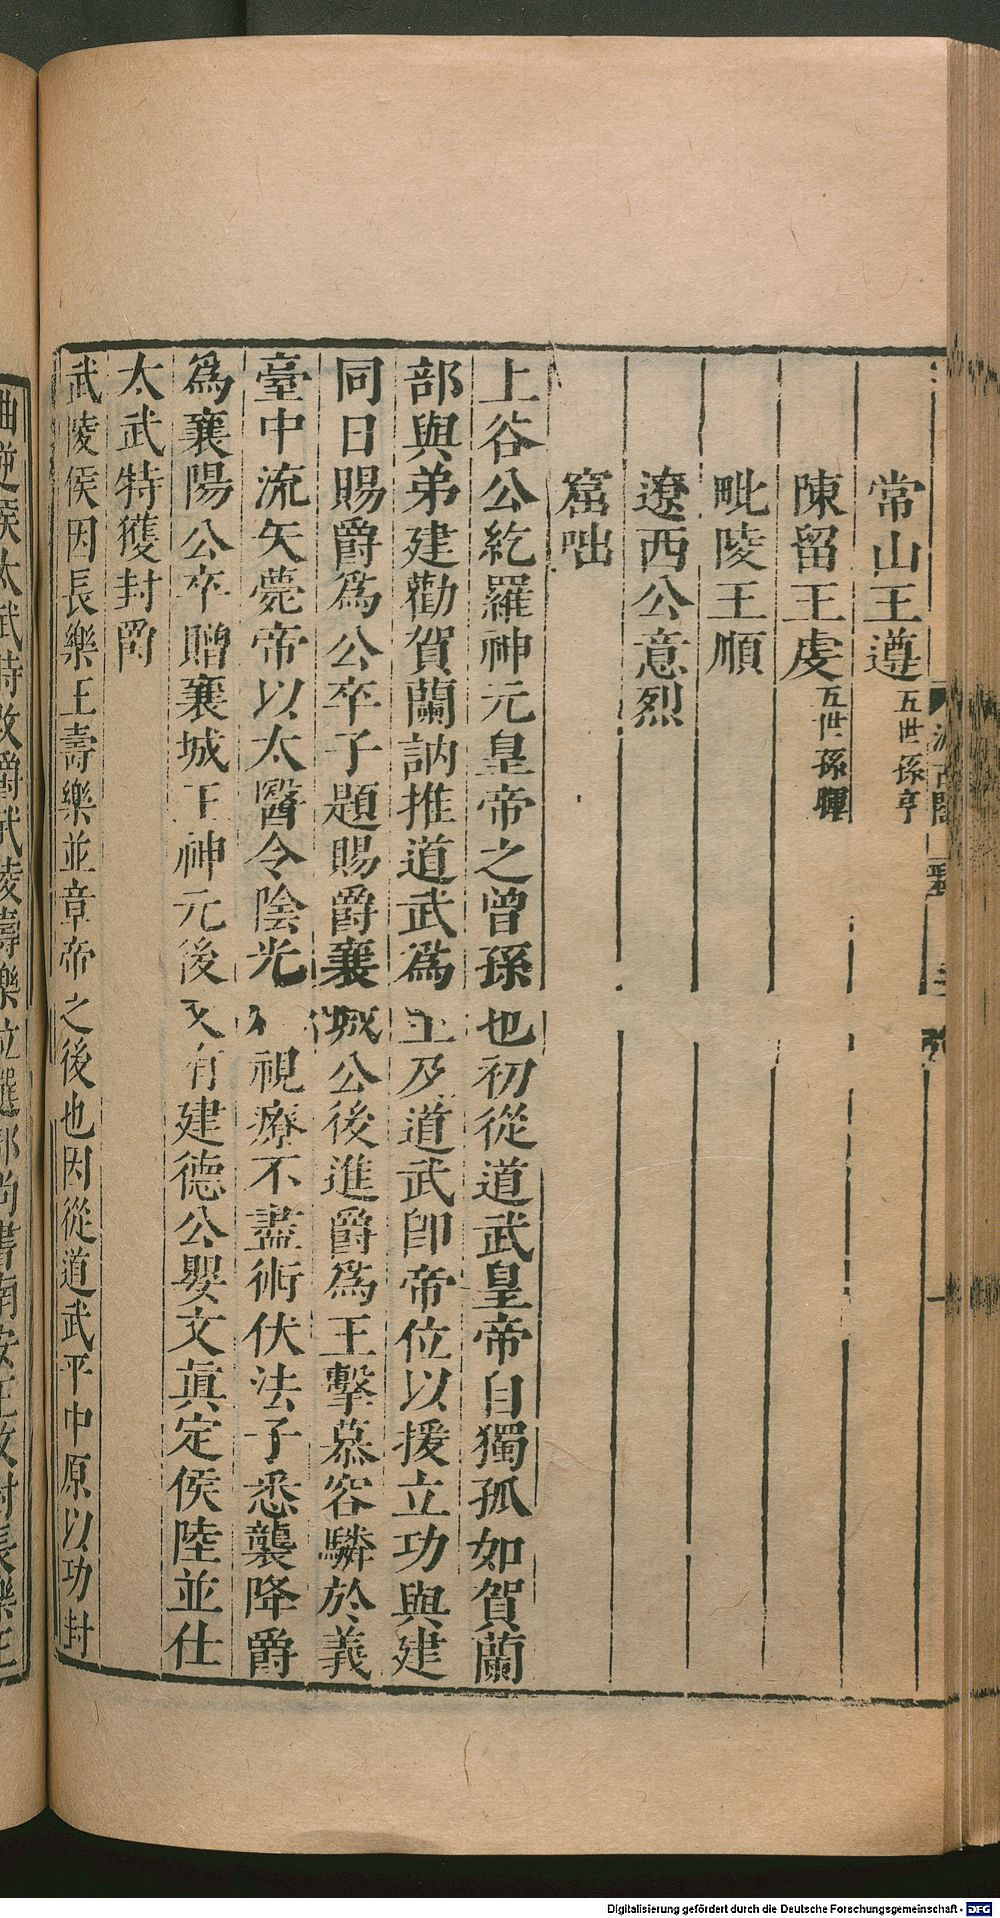 常山王遵 五世孫亨
陳留王虔 五世孫暉
毗陵王順
遼西公意烈
窟咄
上谷公紇羅神元皇帝之曾孫也初從道武皇帝自獨孤如賀蘭
部與弟建勸賀蘭訥推道武為主及道武即帝位以援立功與建
同日賜爵為公卒子題賜爵襄城公後進爵為王擊慕容驎於義
臺中流矢薨帝以太醫令陰光視療不盡術伏法子悉襲降爵
為襄陽公卒贈襄城王神元後又有建德公嬰文真定侯陸並仕
太武特獲封爵
武陵侯因長樂王壽樂並章帝之後也因從道武平中原以功封
曲逆侯太武時改爵武陵壽樂位選部尚書南安王改封長樂王
Digitalisierung gefördert durch die Deutsche Forschungsgemeinschaft - DFG